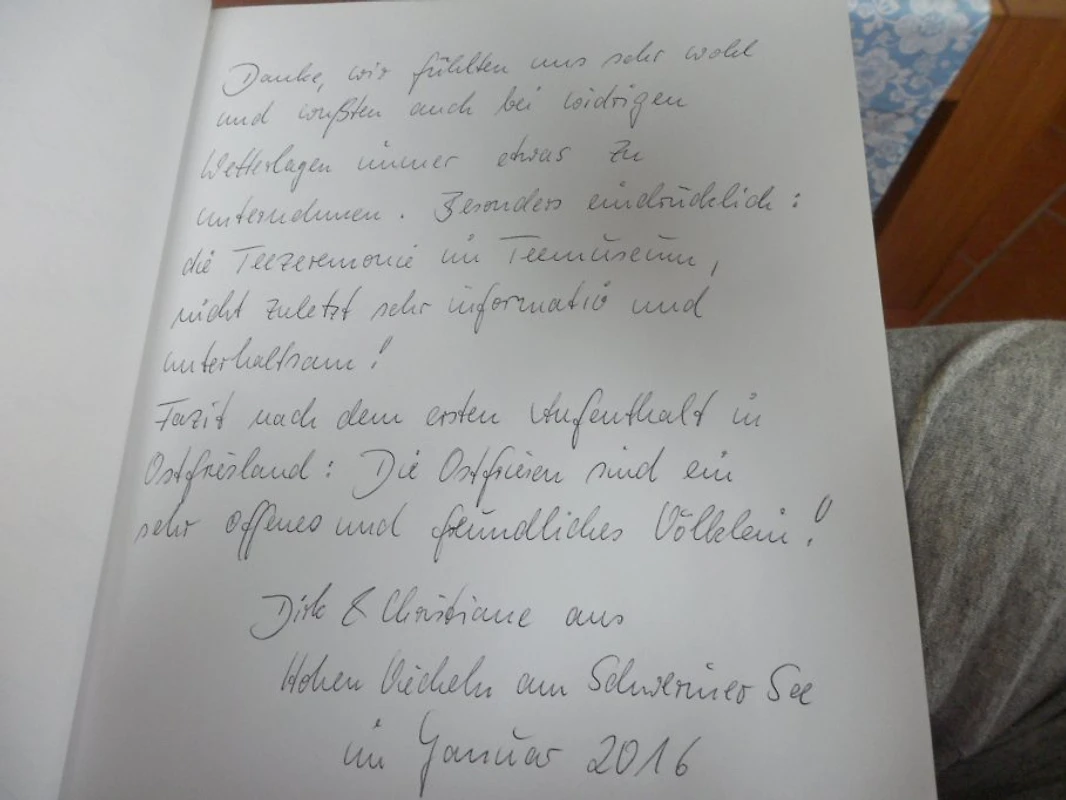 Danke, wir fühlten uns sehr wohl
und wußten auch bei widrigen
Wetterlagen immer etwas zu
unternehmen. Besonders eindrücklich:
die Teezeremonie im Teemuseum,
nicht zuletzt sehr informativ und
unterhaltsam!
Fazit nach dem ersten Aufenthalt in
Ostfriesland: Die Ostfriesen sind ein
sehr offenes und freundliches Völklein!
Dirk & Christiane aus
Hohen Viecheln am Schweriner See
im Januar 2016